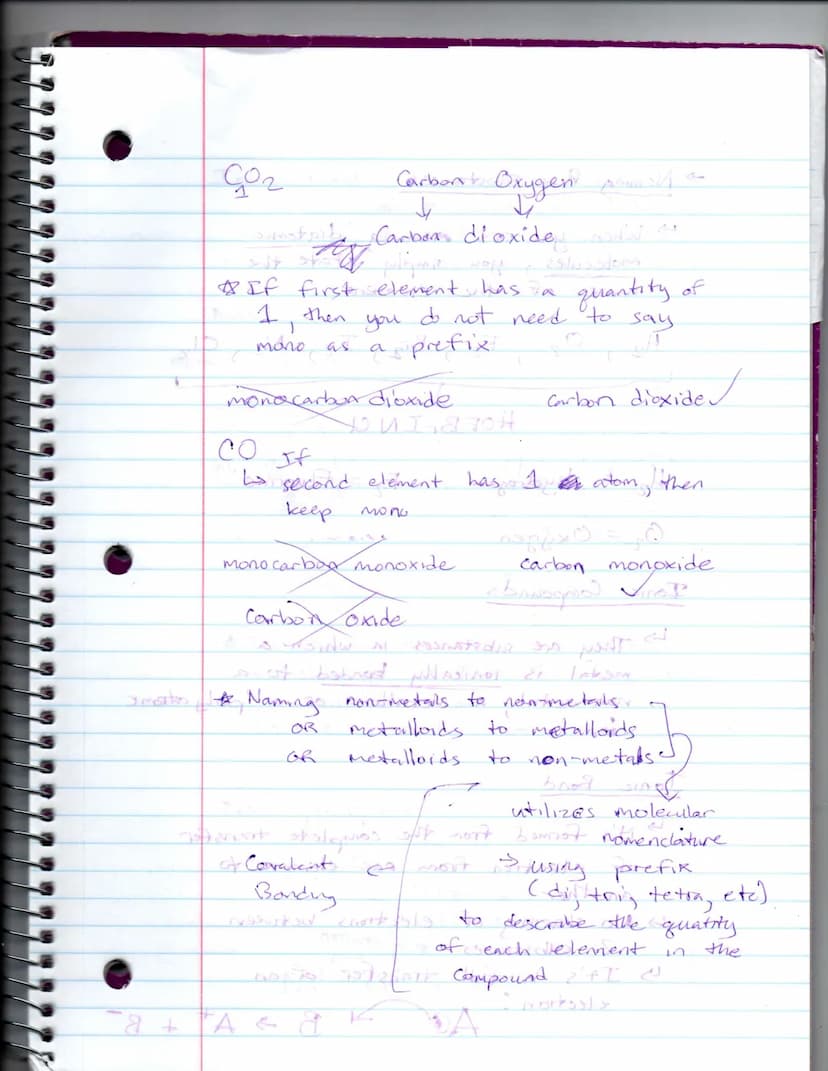 CO2 Carbon Oxygen
1
↓ ↓
Carbon dioxide
☆ If first element has a quantity of
1, then you do not need to say
mono as a prefix
monocarbon dioxide carbon dioxide ✓
CO If
↳ second element has 1 atom, then
keep mono
monocarbon monoxide carbon monoxide
✓
Carbon oxide
☆ Naming nonmetals to non-metals
OR metalloids to metalloids
OR metalloids to non-metals
utilizes molecular
nomenclature
Covalent ⇔ → using prefix
Bonding (di, tri, tetra, etc)
to describe the quantity
of each element in the
compound